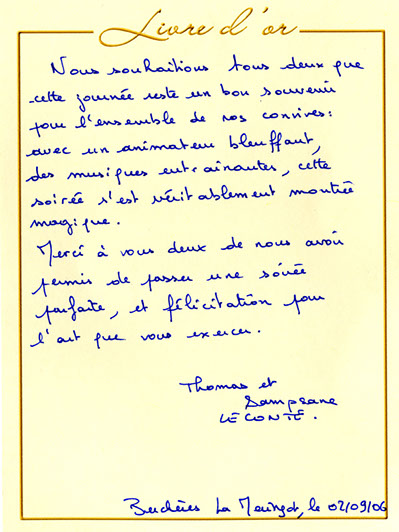 Livre d'or
Nous souhaitions tous deux que
cette journée reste un bon souvenir
pour l'ensemble de nos convives:
avec un animateur bleuffant,
des musiques entrainantes, cette
soirée s'est véritablement montrée
magique.
Merci à vous deux de nous avoir
permis de passer une soirée
parfaite, et félicitation pour
l'art que vous exercer.
Thomas et
LECONTE.
Berchères La Maingot, le 02/09/06